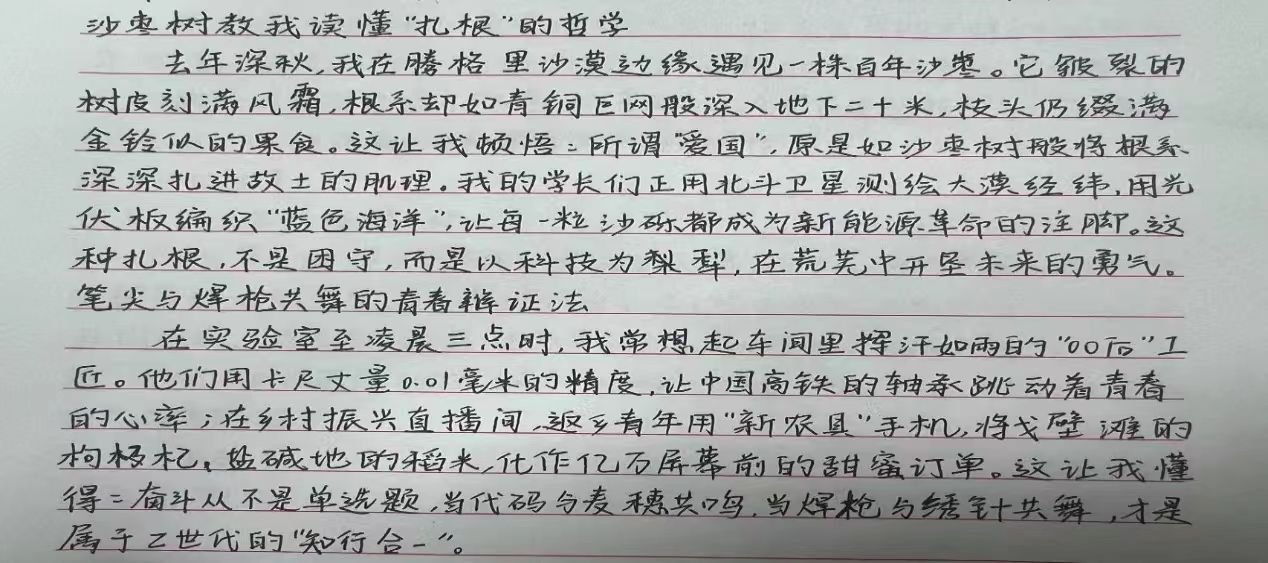 沙枣树教我读懂"扎根"的哲学
去年深秋,我在腾格里沙漠边缘遇见一株百年沙枣。它皲裂的
树皮刻满风霜,根系却如青铜巨网般深入地下二十米,枝头仍缀满
金铃似的果食。这让我顿悟:所谓"爱国",原是如沙枣树般将根系
深深扎进故土的肌理。我的学长们正用北斗卫星测绘大漠经纬,用光
伏板编织"蓝色海洋",让每一粒沙砾都成为新能源革命的注脚。这
种扎根,不是困守,而是以科技为犁,在荒芜中开垦未来的勇气。
笔尖与焊枪共舞的青春辩证法
在实验室至凌晨三点时,我常想起车间里挥汗如雨的"00后"工
匠。他们用卡尺丈量0.01毫米的精度,让中国高铁的轴承跳动着青春
的心率;在乡村振兴直播间,返乡青年用"新农具"手机,将戈壁滩的
枸杞、盐碱地的稻米,化作亿万屏幕前的甜蜜订单。这让我懂
得:奋斗从不是单选题,当代码与麦穗共鸣,当焊枪与绣针共舞,才是
属于Z世代的"知行合一"。